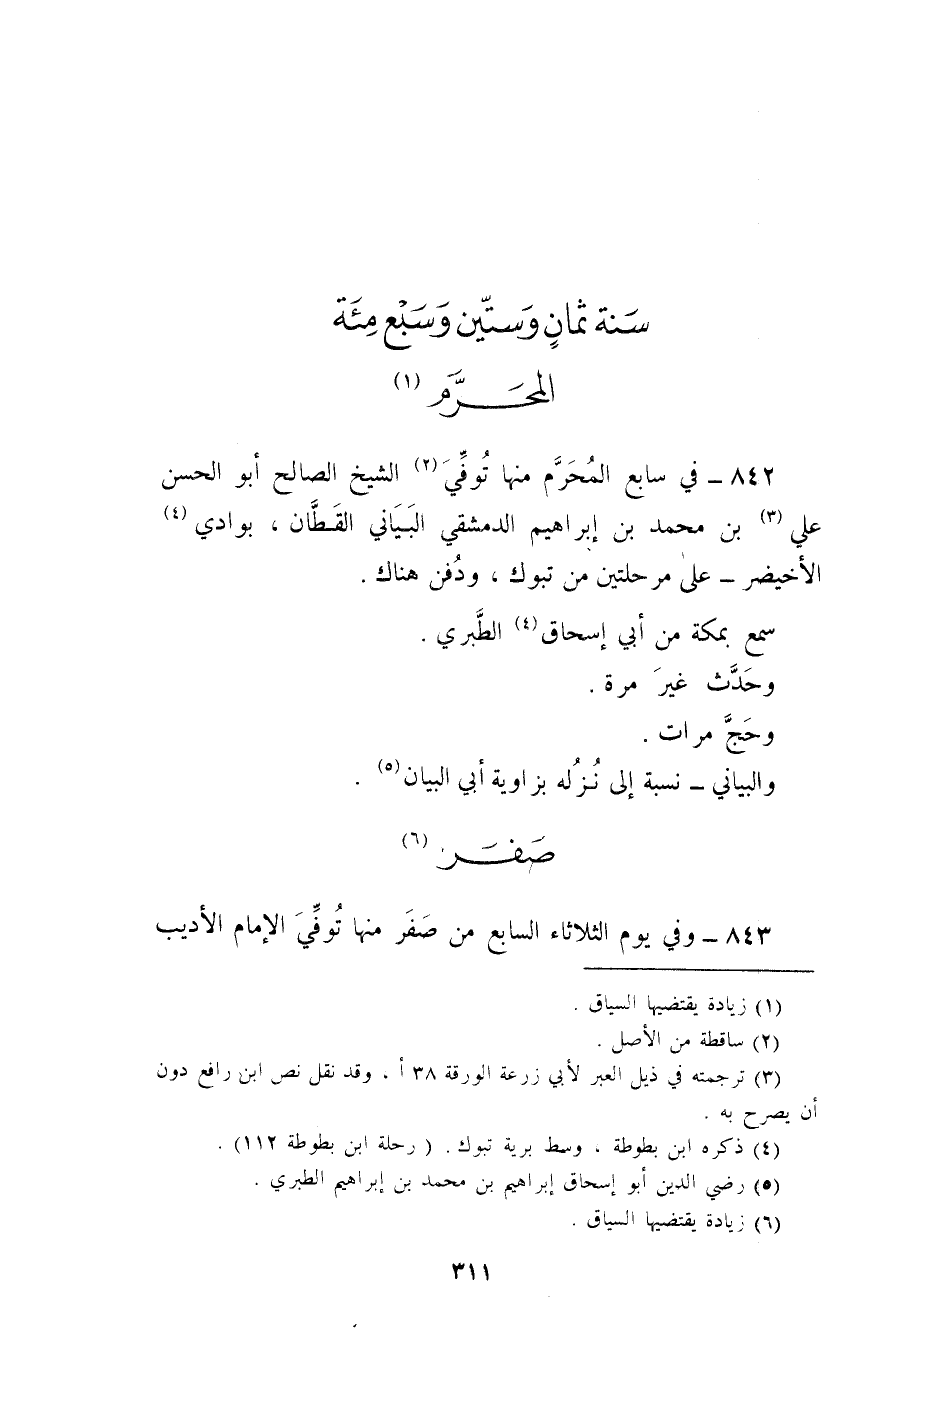 سَنة ثمانٍ وَستّين وَسَبْع مِئَة
المحَرَّم (١)
٨٤٢ ـ في سابع المُحَرَّم منها تُوفِّيَ(٢) الشيخ الصالح أبو الحسن
علي(٣) بن محمد بن إبراهيم الدمشقي البَيَاني القَطَّان ، بوادي(٤)
الأخيضر ـ على مرحلتين من تبوك ، ودُفن هناك .
سمع بمكة من أبي إسحاق(٤) الطَّبري .
وحَدَّث غيرَ مرة .
وحَجَّ مرات .
والبياني ـ نسبة إلى نُزُله بزاوية أبي البيان(٥) .
صَفَر (٦)
٨٤٣ ـ وفي يوم الثلاثاء السابع من صَفَر منها تُوفِّيَ الإمام الأديب
(١) زيادة يقتضيها السياق .
(٢) ساقطة من الأصل .
(٣) ترجمته في ذيل العبر لأبي زرعة الورقة ٣٨ أ ، وقد نقل نص ابن رافع دون
أن يصرح به .
(٤) ذكره ابن بطوطة ، وسط برية تبوك . ( رحلة ابن بطوطة ١١٢) .
(٥) رضي الدين أبو إسحاق إبراهيم بن محمد بن إبراهيم الطبري .
(٦) زيادة يقتضيها السياق .
٣١١